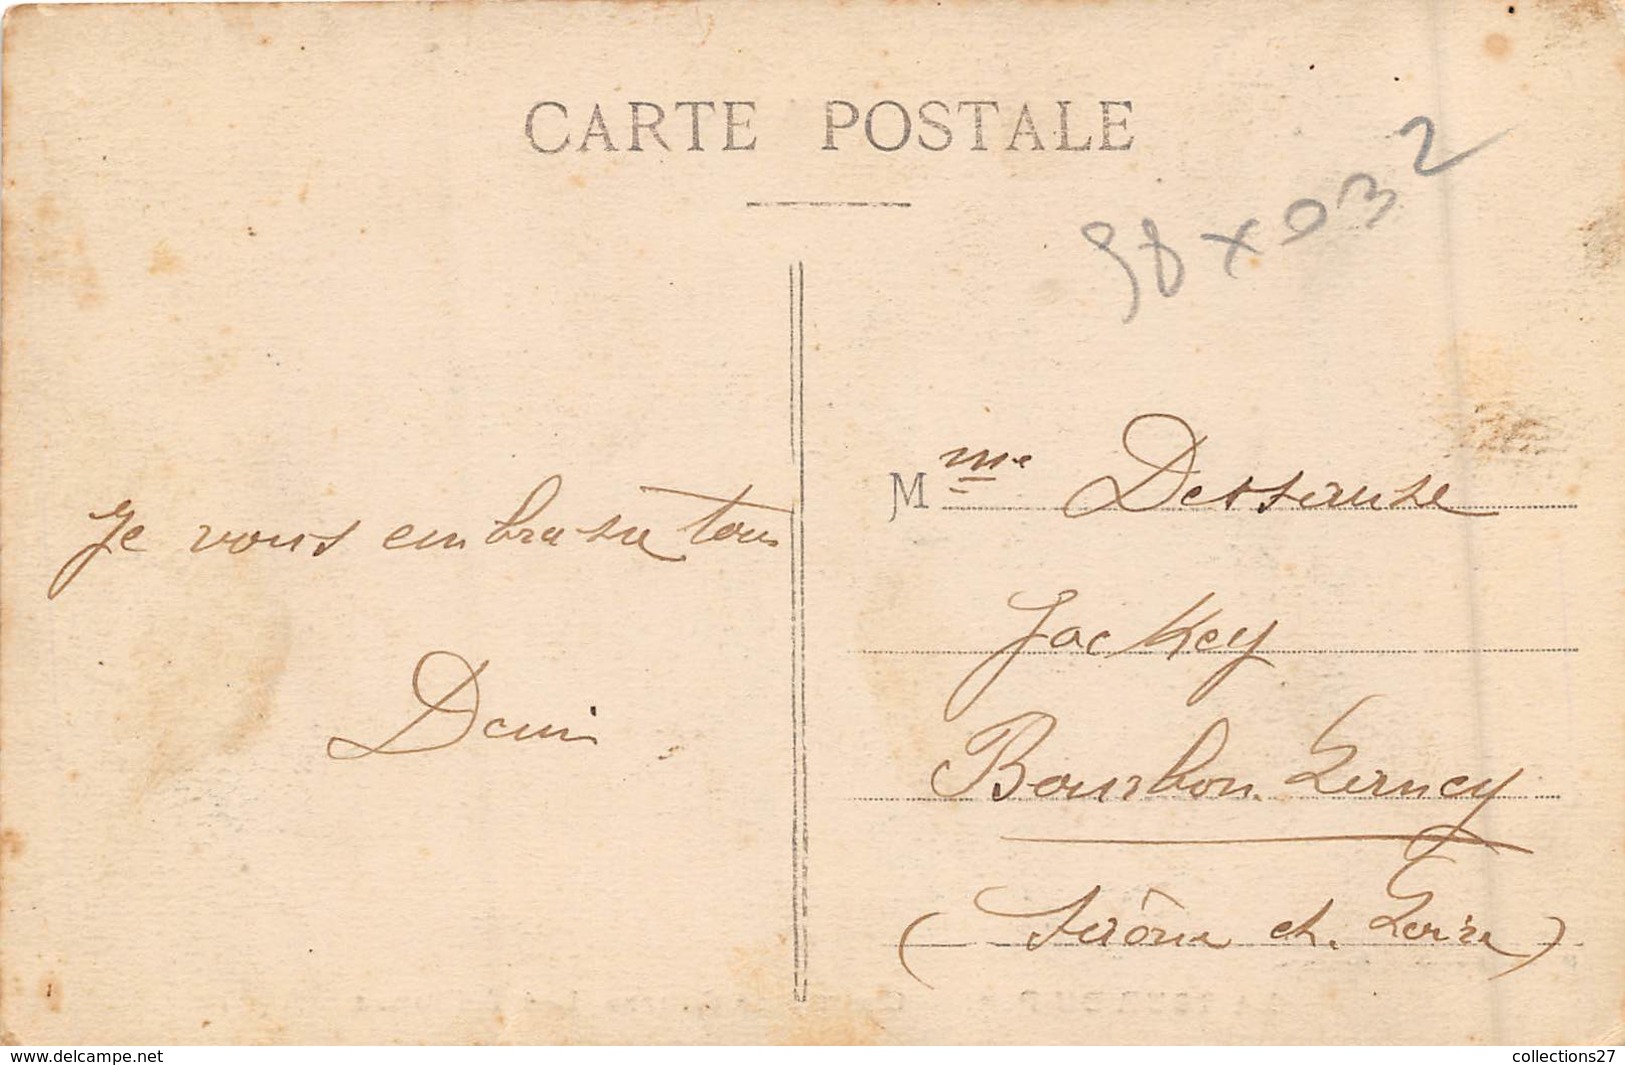 CARTE POSTALE
98x032
Je vous embrasse tous
Denis
Mme Dessause
Jockey
Bourbon. Lancy
(Saône et. Loire)
www.delcampe.net
collections27